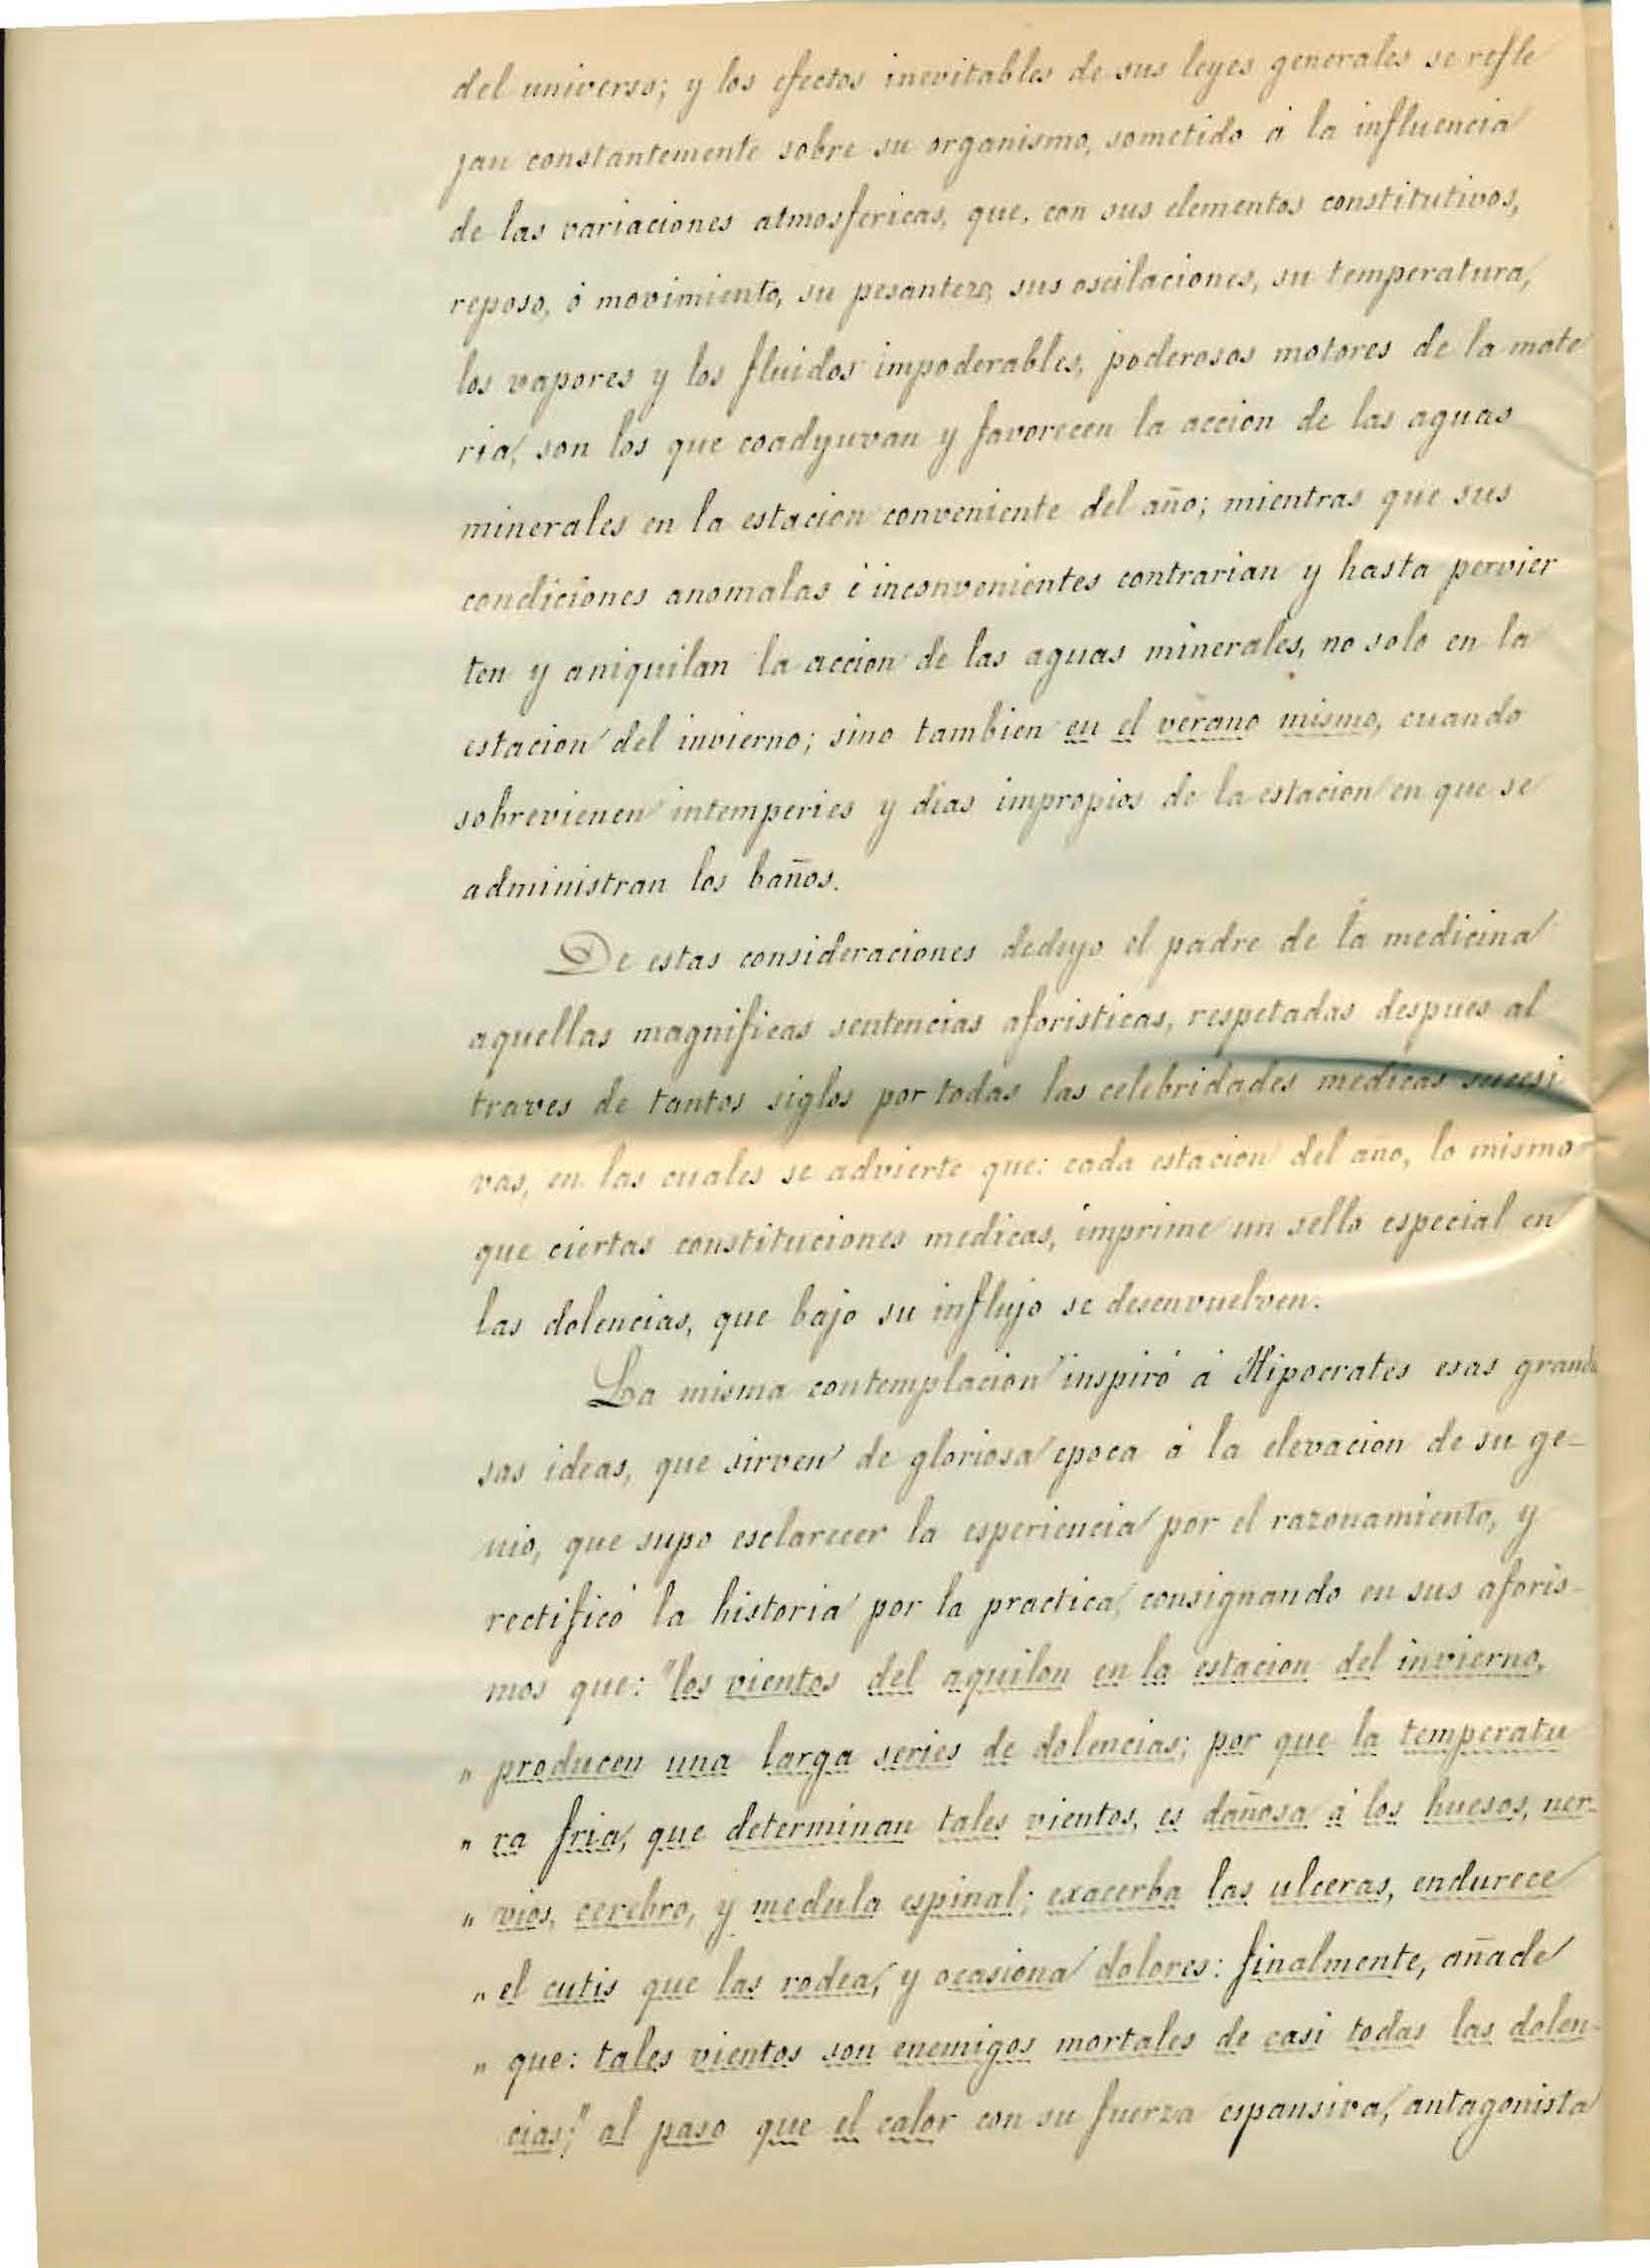 del universo; y los efectos inevitables de sus leyes generales se refle
jan constantemente sobre su organismo, sometido á la influencia
de las variaciones atmosfericas, que, con sus elementos constitutivos,
reposo, ó movimiento, su pesantezo, sus oscilaciones, su temperatura,
los vapores y los fluidos impoderables, poderosos motores de la mate
ria, son los que coadyuvan y favorecen la accion de las aguas
minerales en la estacion conveniente del año; mientras que sus
condiciones anomalas é inconvenientes contrarian y hasta pervier
ten y aniquilan la accion de las aguas minerales, no solo en la
estacion del invierno; sino tambien en el verano mismo, cuando
sobrevienen intemperies y dias impropios de la estacion en que se
administran los baños.
De estas consideraciones dedujo el padre de la medicina
aquellas magnificas sentencias aforisticas, respetadas despues al
traves de tantos siglos por todas las celebridades medicas sucesi
vas, en las cuales se advierte que: cada estacion del año, lo mismo
que ciertas constituciones medicas, imprime un sello especial en
las dolencias, que bajo su influjo se desenvuelven.
La misma contemplacion inspiró á Hipocrates esas grandio
sas ideas, que sirven de gloriosa epoca á la elevacion de su ge-
nio, que supo esclarecer la esperiencia por el razonamiento, y
rectificó la historia por la practica, consignando en sus aforis-
mos que: "los vientos del aquilon en la estacion del invierno,
" producen una larga series de dolencias; por que la temperatu
" ra fria, que determinan tales vientos, es dañosa á los huesos, ner-
" vios, cerebro, y medula espinal; exacerba las ulceras, endurece
" el cutis que las rodea, y ocasiona dolores: finalmente, añade
" que: tales vientos son enemigos mortales de casi todas las dolen-
cias;" al paso que el calor con su fuerza espansiva, antagonista